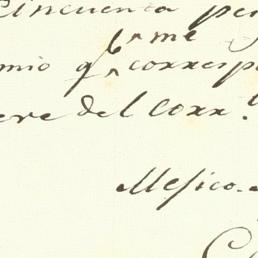 Cincuenta pe
mio q.^e me correspo
ere del corr.^te
Mexico.